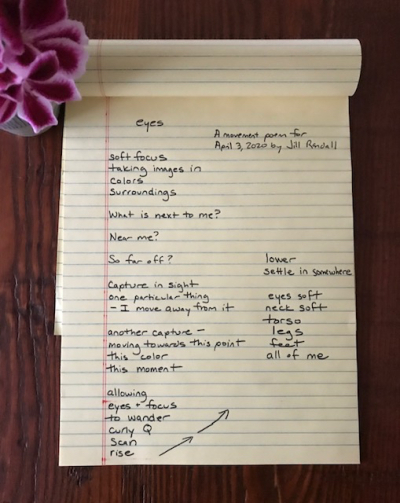 eyes
A movement poem for
April 3, 2020 by Jill Randall
soft focus
taking images in
colors
Surroundings
What is next to me?
Near me?
So far off?
Capture in sight
one particular thing
- I move away from it
another capture -
moving towards this point
this color
this moment
allowing
eyes + focus
to wander
curly Q
Scan
rise
lower
settle in somewhere
eyes soft
neck soft
torso
legs
feet
all of me